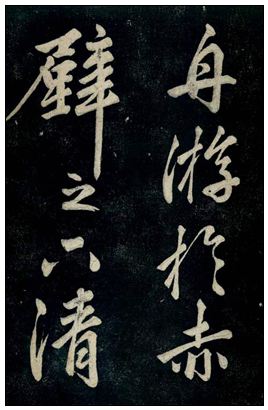 舟游於赤
壁之下清